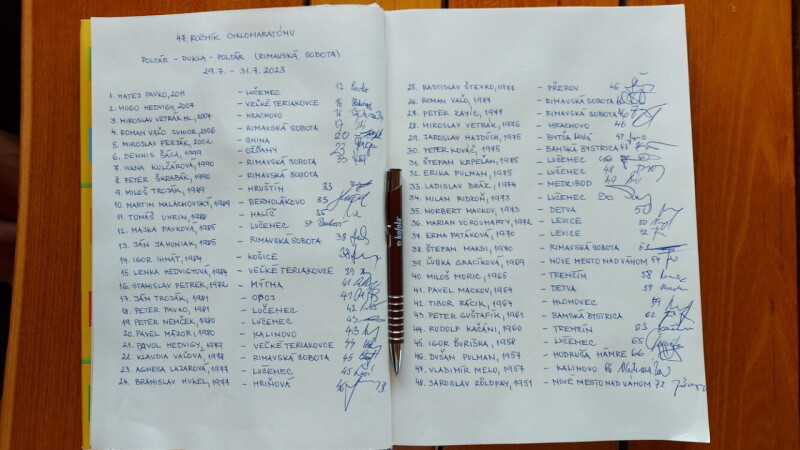 47. ROČNÍK CYKLOMARATÓNU
POLTÁR - DUKLA - POLTÁR (RIMAVSKÁ SOBOTA)
29.7. - 31.7. 2023
1. MATEJ PAVKO, 2011 - LUČENEC 12
2. HUGO HEDVIGY, 2007 - VEĽKÉ TERIAKOVCE 16
3. MIROSLAV VETRÁK ML., 2007 - HRACHOVO 16
4. ROMAN VAĽO JUNIOR, 2006 - RIMAVSKÁ SOBOTA 17
5. MIROSLAV FERJÁK, 2002 - 20
6. DENNIS ŠÁGA, 1999 - OŽĎANY 23
7. IVANA KULŽÁROVÁ, 1990 - RIMAVSKÁ SOBOTA 33
8. PETER ŠKRABÁK, 1990 - RIMAVSKÁ SOBOTA
9. MILOŠ TROJÁK, 1989 - HRUŠTÍN 33
10. MARTIN MALACHOVSKÝ, 1989 - BERNOLÁKOVO
11. TOMÁŠ UHRIN, - HALÍČ
12. MAJKA PAVKOVÁ, 1985 - LUČENEC 37
13. JÁN JAMNIAK, 1985 - RIMAVSKÁ SOBOTA 38
14. IGOR IHNÁT, 1984 - KOŠICE 38
15. LENKA HEDVIGYOVÁ, 1984 - VEĽKÉ TERIAKOVCE 39
16. STANISLAV PETREK, 1982 - MÝTNA 41
17. JÁN TROJÁK, 1981 - 41
18. PETER PAVKO, 1981 - LUČENEC 42
19. PETER NEMČEK, 1980 - LUČENEC 43
20. PAVEL MÁZOR, 1980 - KALINOVO 43
21. PAVOL HEDVIGY, 1979 - VEĽKÉ TERIAKOVCE 44
22. KLAUDIA VAĽOVÁ, 1978 - RIMAVSKÁ SOBOTA 45
23. AGNESA LAZAROVÁ, 1977 - LUČENEC 45
24. BRANISLAV HUKEL, 1977 - HRIŇOVÁ 46
25. RASTISLAV ŠTEVKO, 1977 - PŘEROV 46
26. ROMAN VAĽO, 1977 - RIMAVSKÁ SOBOTA
27. PETER KATIČ, 1977 - RIMAVSKÁ SOBOTA 46
28. MIROSLAV VETRÁK, 1976 - HRACHOVO 46
29. JAROSLAV HAJDICH, 1975 - BYTČA 47
30. PETER KOVÁŠ, 1975 - BANSKÁ BYSTRICA 48
31. ŠTEFAN KRPEĽÁN, 1975 - LUČENEC
32. ERIKA PULMAN, 1975 - LUČENEC 48
33. LADISLAV BRÁZ, 1974 - MEDZIBROD 49
34. MILAN RIDZOŇ, 1973 - LUČENEC 50
35. NORBERT MACKOV, 1973 - DETVA 50
36. MARIAN VÖRÖSMARTY, 1972 - LEVICE
37. ERNA PATÁKOVÁ, 1970 - LEVICE 52
38. ŠTEFAN MAKSI, 1970 - RIMAVSKÁ SOBOTA 53
39. ĽUBKA GRACÍKOVÁ, 1969 - NOVÉ MESTO NAD VÁHOM 54
40. MILOŠ MORIC, 1965 - TRENČÍN 58
41. PAVEL MACKOV, 1964 - DETVA 59
42. TIBOR RÁCIK, 1964 - HLOHOVEC 59
43. PETER GUSTAFÍK, 1961 - BANSKÁ BYSTRICA 62
44. RUDOLF KAČÁNI, 1960 - TRENČÍN 63
45. IGOR BURÍŠKA, 1958 - LUČENEC 65
46. DUŠAN PULMAN, 1957 - HODRUŠA HÁMRE 66
47. VLADIMÍR MELO, 1957 - KALINOVO 66
48. JAROSLAV ZÖLDFAY, 1951 - NOVÉ MESTO NAD VÁHOM 72